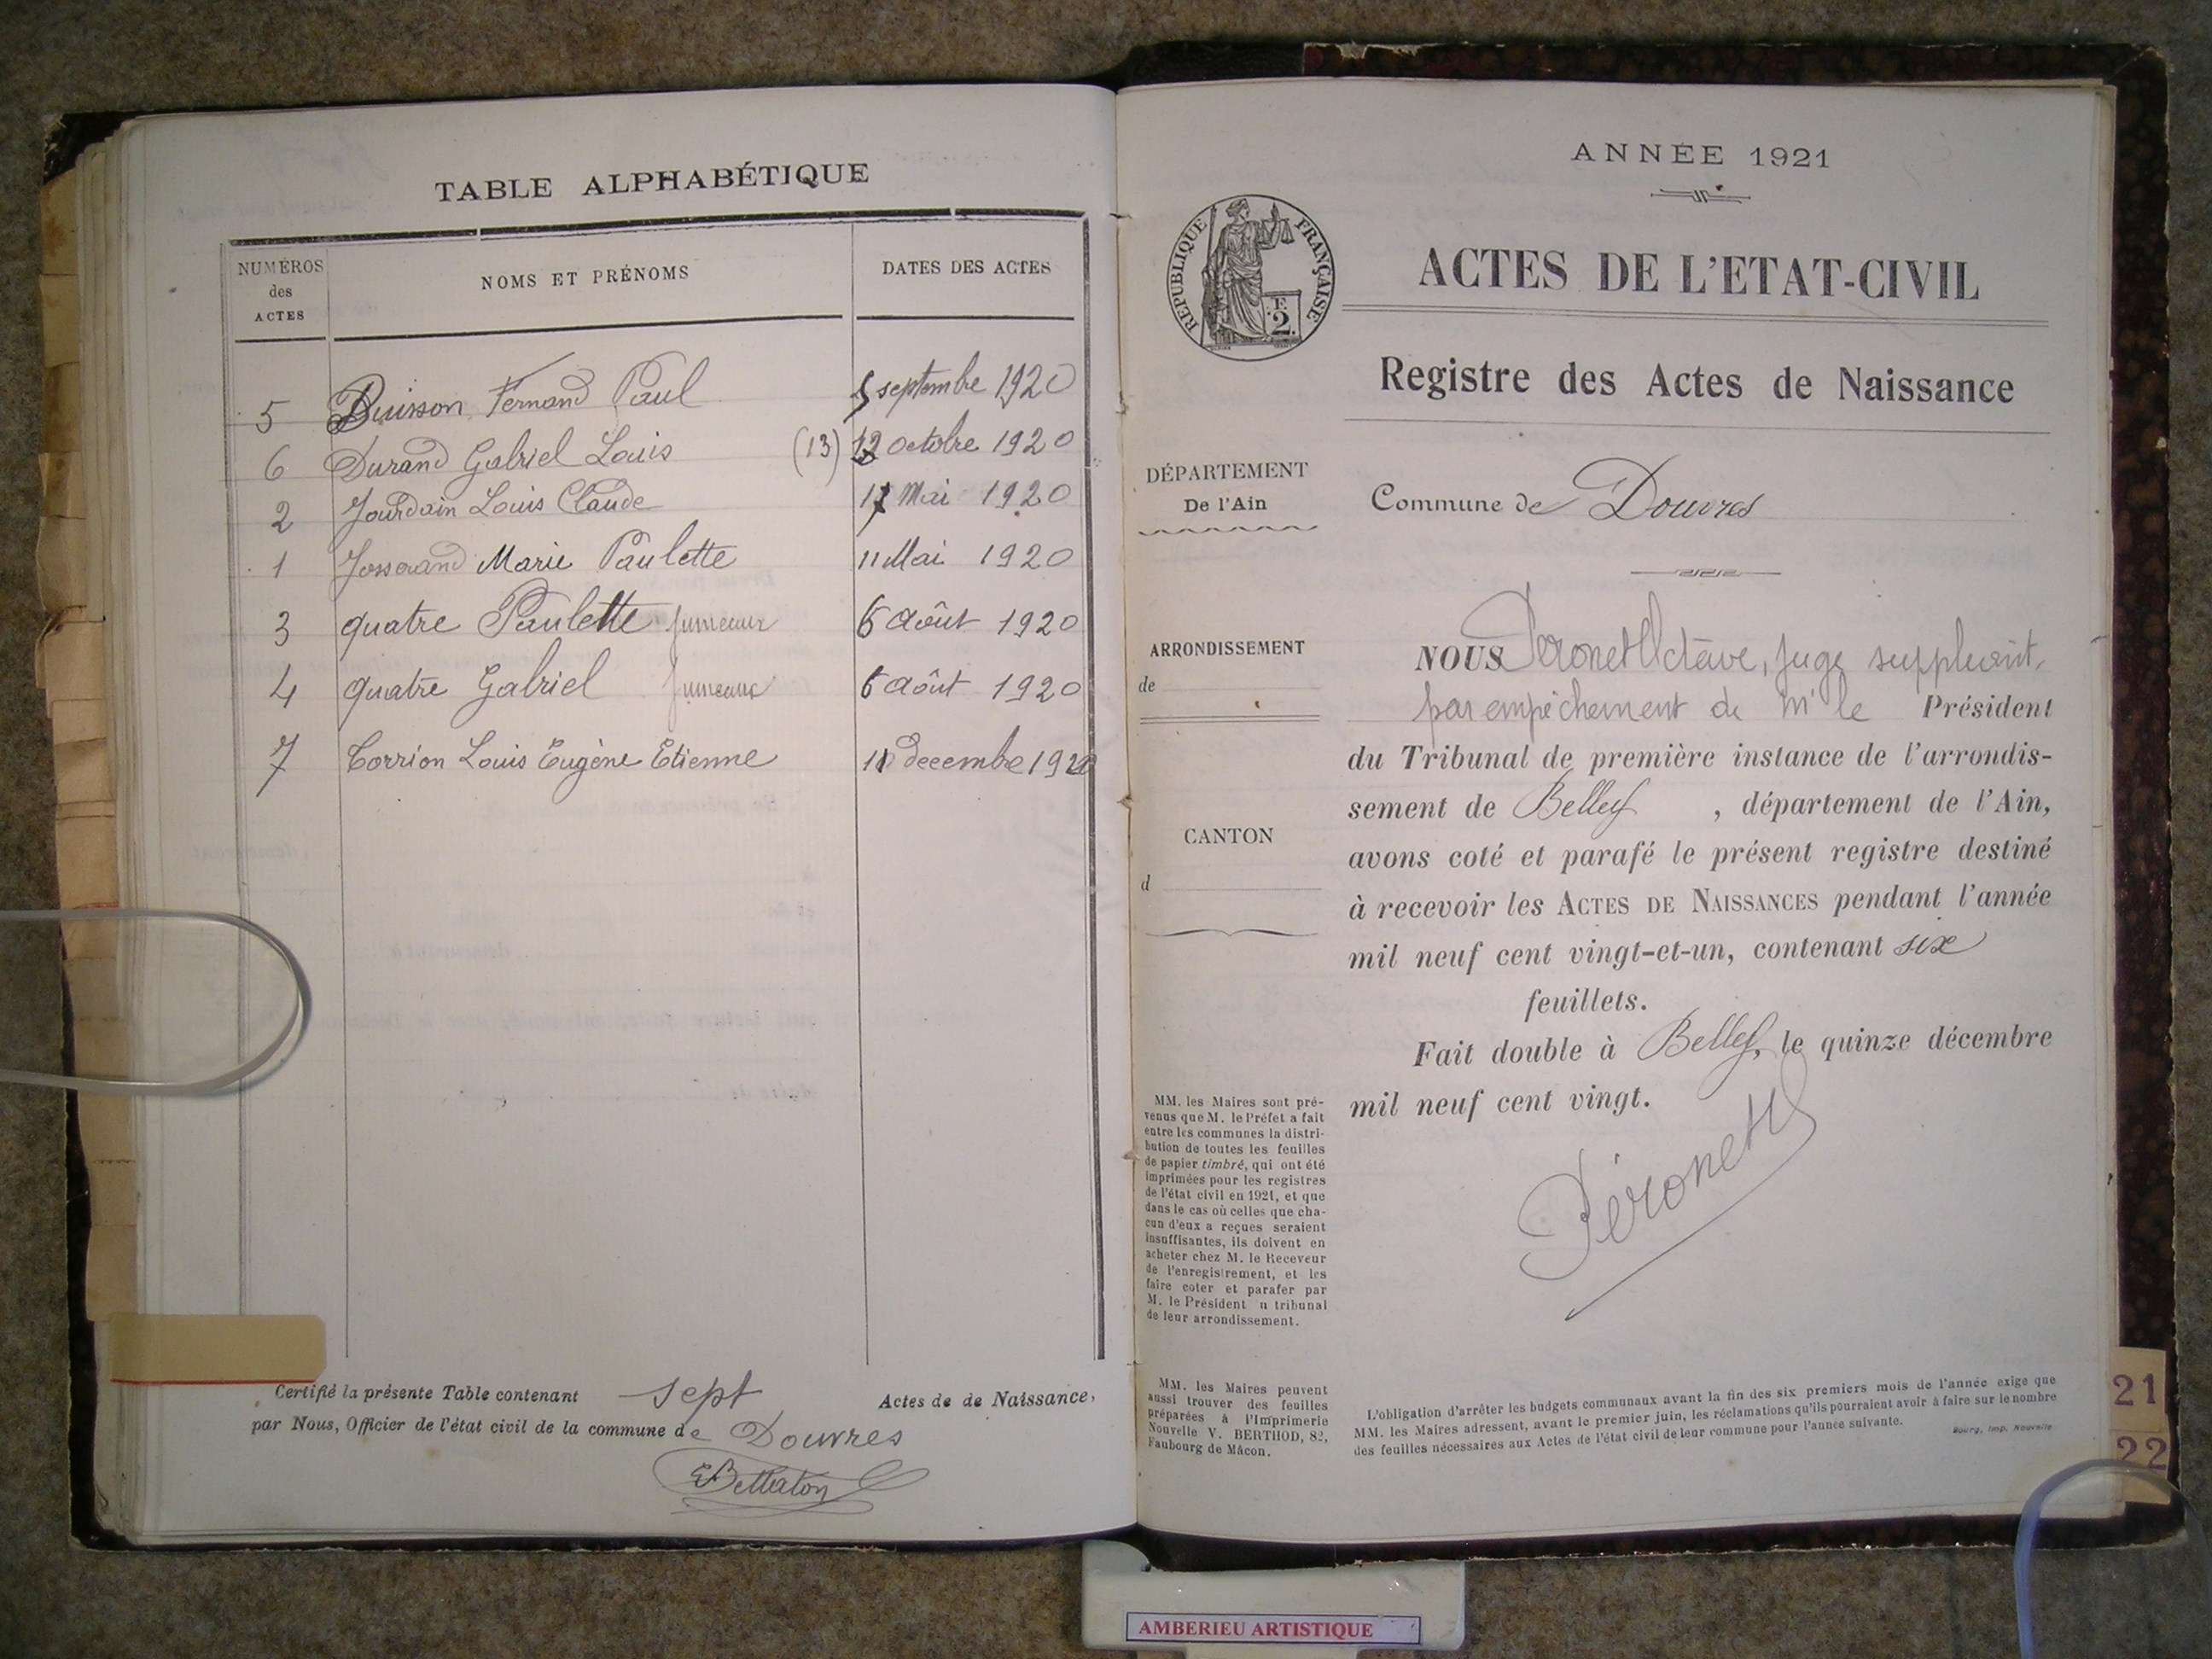 TABLE ALPHABÉTIQUE
NUMÉROS
des
ACTES
NOMS ET PRÉNOMS
DATES DES ACTES
5 Buisson Fernand Paul 5 septembre 1920
6 Durand Gabriel Louis (13) octobre 1920
2 Jourdain Louis Claude 17 Mai 1920
1 Josserand Marie Paulette 11 Mai 1920
3 quatre Paulette jumeaux 6 Août 1920
4 quatre Gabriel jumeaux 6 Août 1920
7 Corrion Louis Eugène Etienne decembre 1920
Certifié la présente Table contenant sept Actes de de Naissance,
par Nous, Officier de l'état civil de la commune de Douvres
ANNÉE 1921
RÉPUBLIQUE FRANÇAISE
E.
2
ACTES DE L'ETAT-CIVIL
Registre des Actes de Naissance
DÉPARTEMENT
De l'Ain
Commune de Douvres
ARRONDISSEMENT
de
CANTON
d
NOUS Péronet Octave, juge suppléant,
par empêchement de Mr le Président
du Tribunal de première instance de l'arrondis-
sement de Belley , département de l'Ain,
avons coté et parafé le présent registre destiné
à recevoir les ACTES DE NAISSANCES pendant l'année
mil neuf cent vingt-et-un, contenant six
feuillets.
Fait double à Belley, le quinze décembre
mil neuf cent vingt.
Péronet
MM. les Maires sont pré-
venus que M. le Préfet a fait
entre les communes la distri-
bution de toutes les feuilles
de papier timbré, qui ont été
imprimées pour les registres
de l'état civil en 1921, et que
dans le cas où celles que cha-
cun d'eux a reçues seraient
insuffisantes, ils doivent en
acheter chez M. le Receveur
de l'enregistrement, et les
faire coter et parafer par
M. le Président u tribunal
de leur arrondissement.
MM. les Maires peuvent
aussi trouver des feuilles
préparées à l'Imprimerie
Nouvelle V. BERTHOD, 82,
Faubourg de Mâcon.
L'obligation d'arrêter les budgets communaux avant la fin des six premiers mois de l'année exige que
MM. les Maires adressent, avant le premier juin, les réclamations qu'ils pourraient avoir à faire sur le nombre
des feuilles nécessaires aux Actes de l'état civil de leur commune pour l'année suivante.
Bourg, Imp. Nouvelle
21
22
AMBERIEU ARTISTIQUE